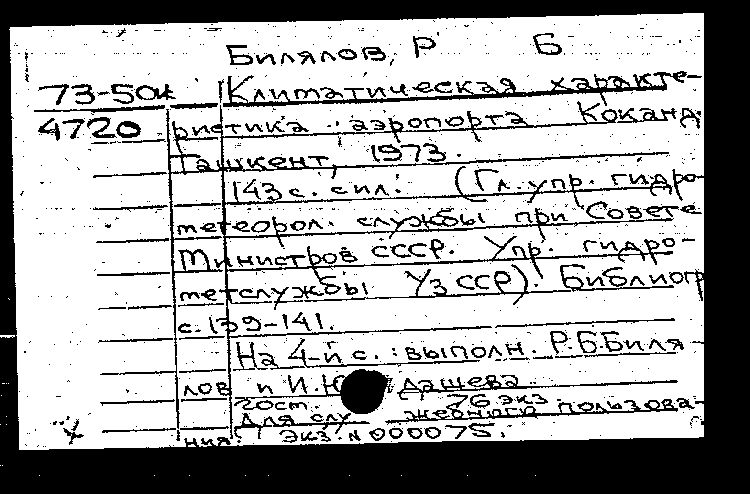 Билялов, Р Б
73-50к Климатическая характе-
4720 ристика аэропорта Коканд.
Ташкент, 1973.
143 с. с ил. (Гл. упр. гидро-
метеорол. службы при Совете
Министров СССР. Упр. гидро-
метслужбы УзССР). Библиогр
с. 139-141.
На 4-й с.: выполн. Р.Б.Биля
лов и И.Ю дашева.
20см. 76 экз
Для служебного пользова-
ния. Экз. № 000075.